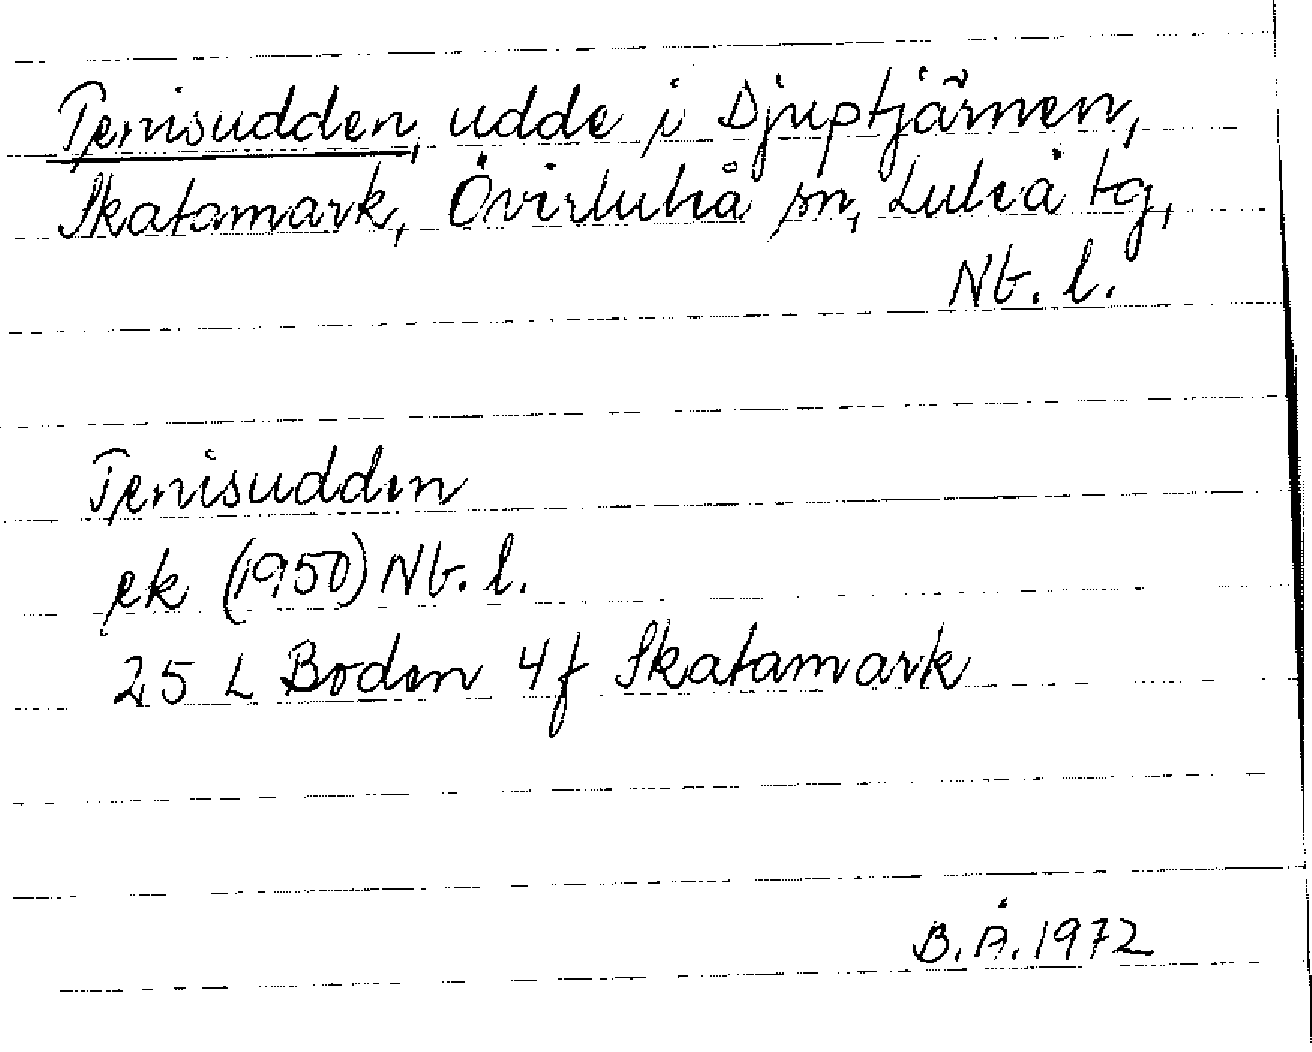 Tenisudden, udde i Djuptjärnen,
Skatamark, Överluleå sn, Luleå tg,
Nb. l.
Tenisudden
ek (1950) Nb. l.
25 L Boden 4f Skatamark
B.Å. 1972